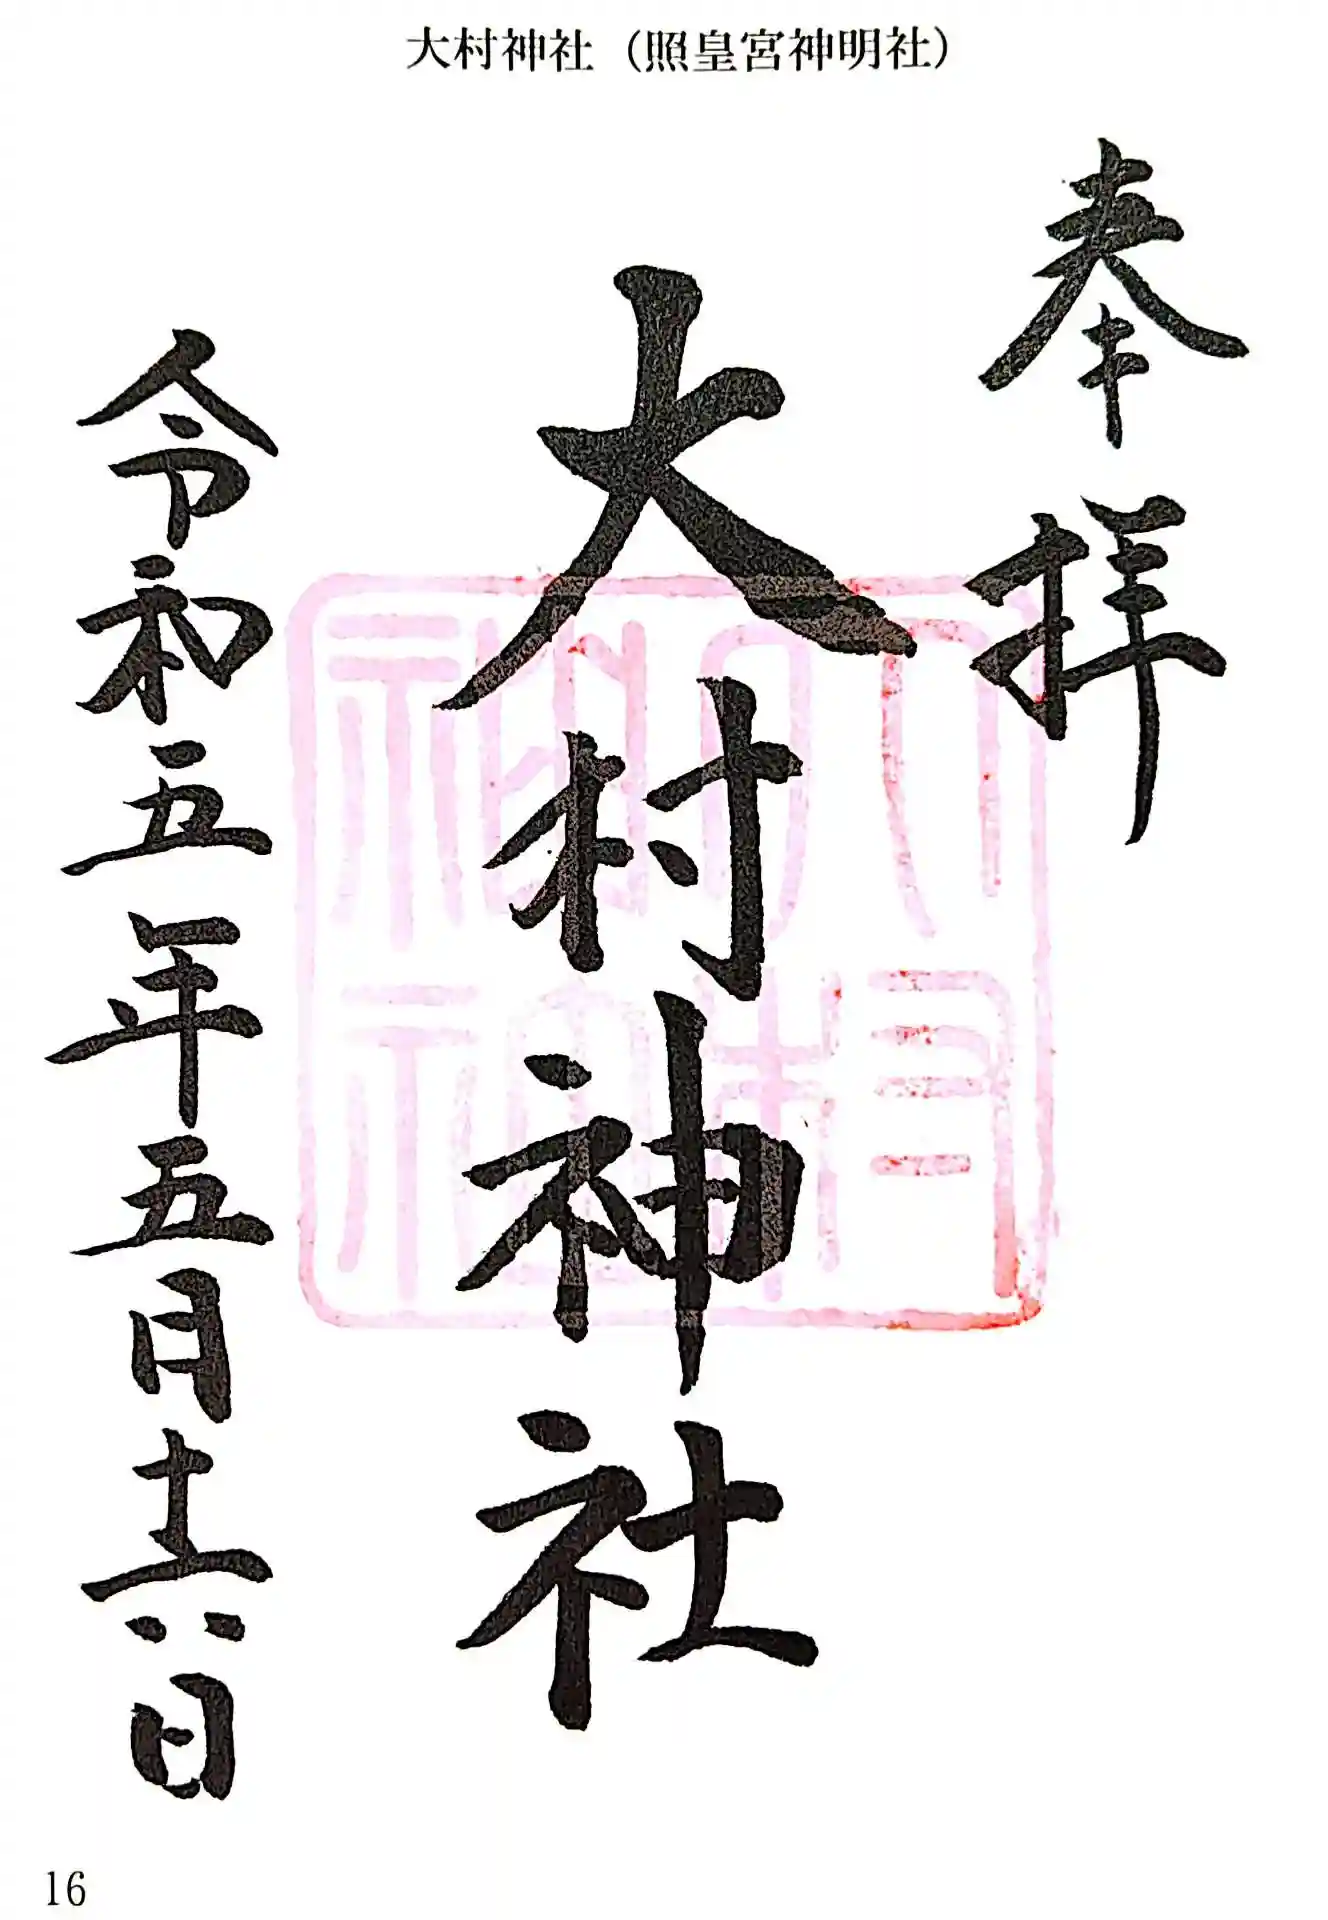 大村神社（照皇宮神明社）
奉拝
大村神社
令和五年五月十六日
16